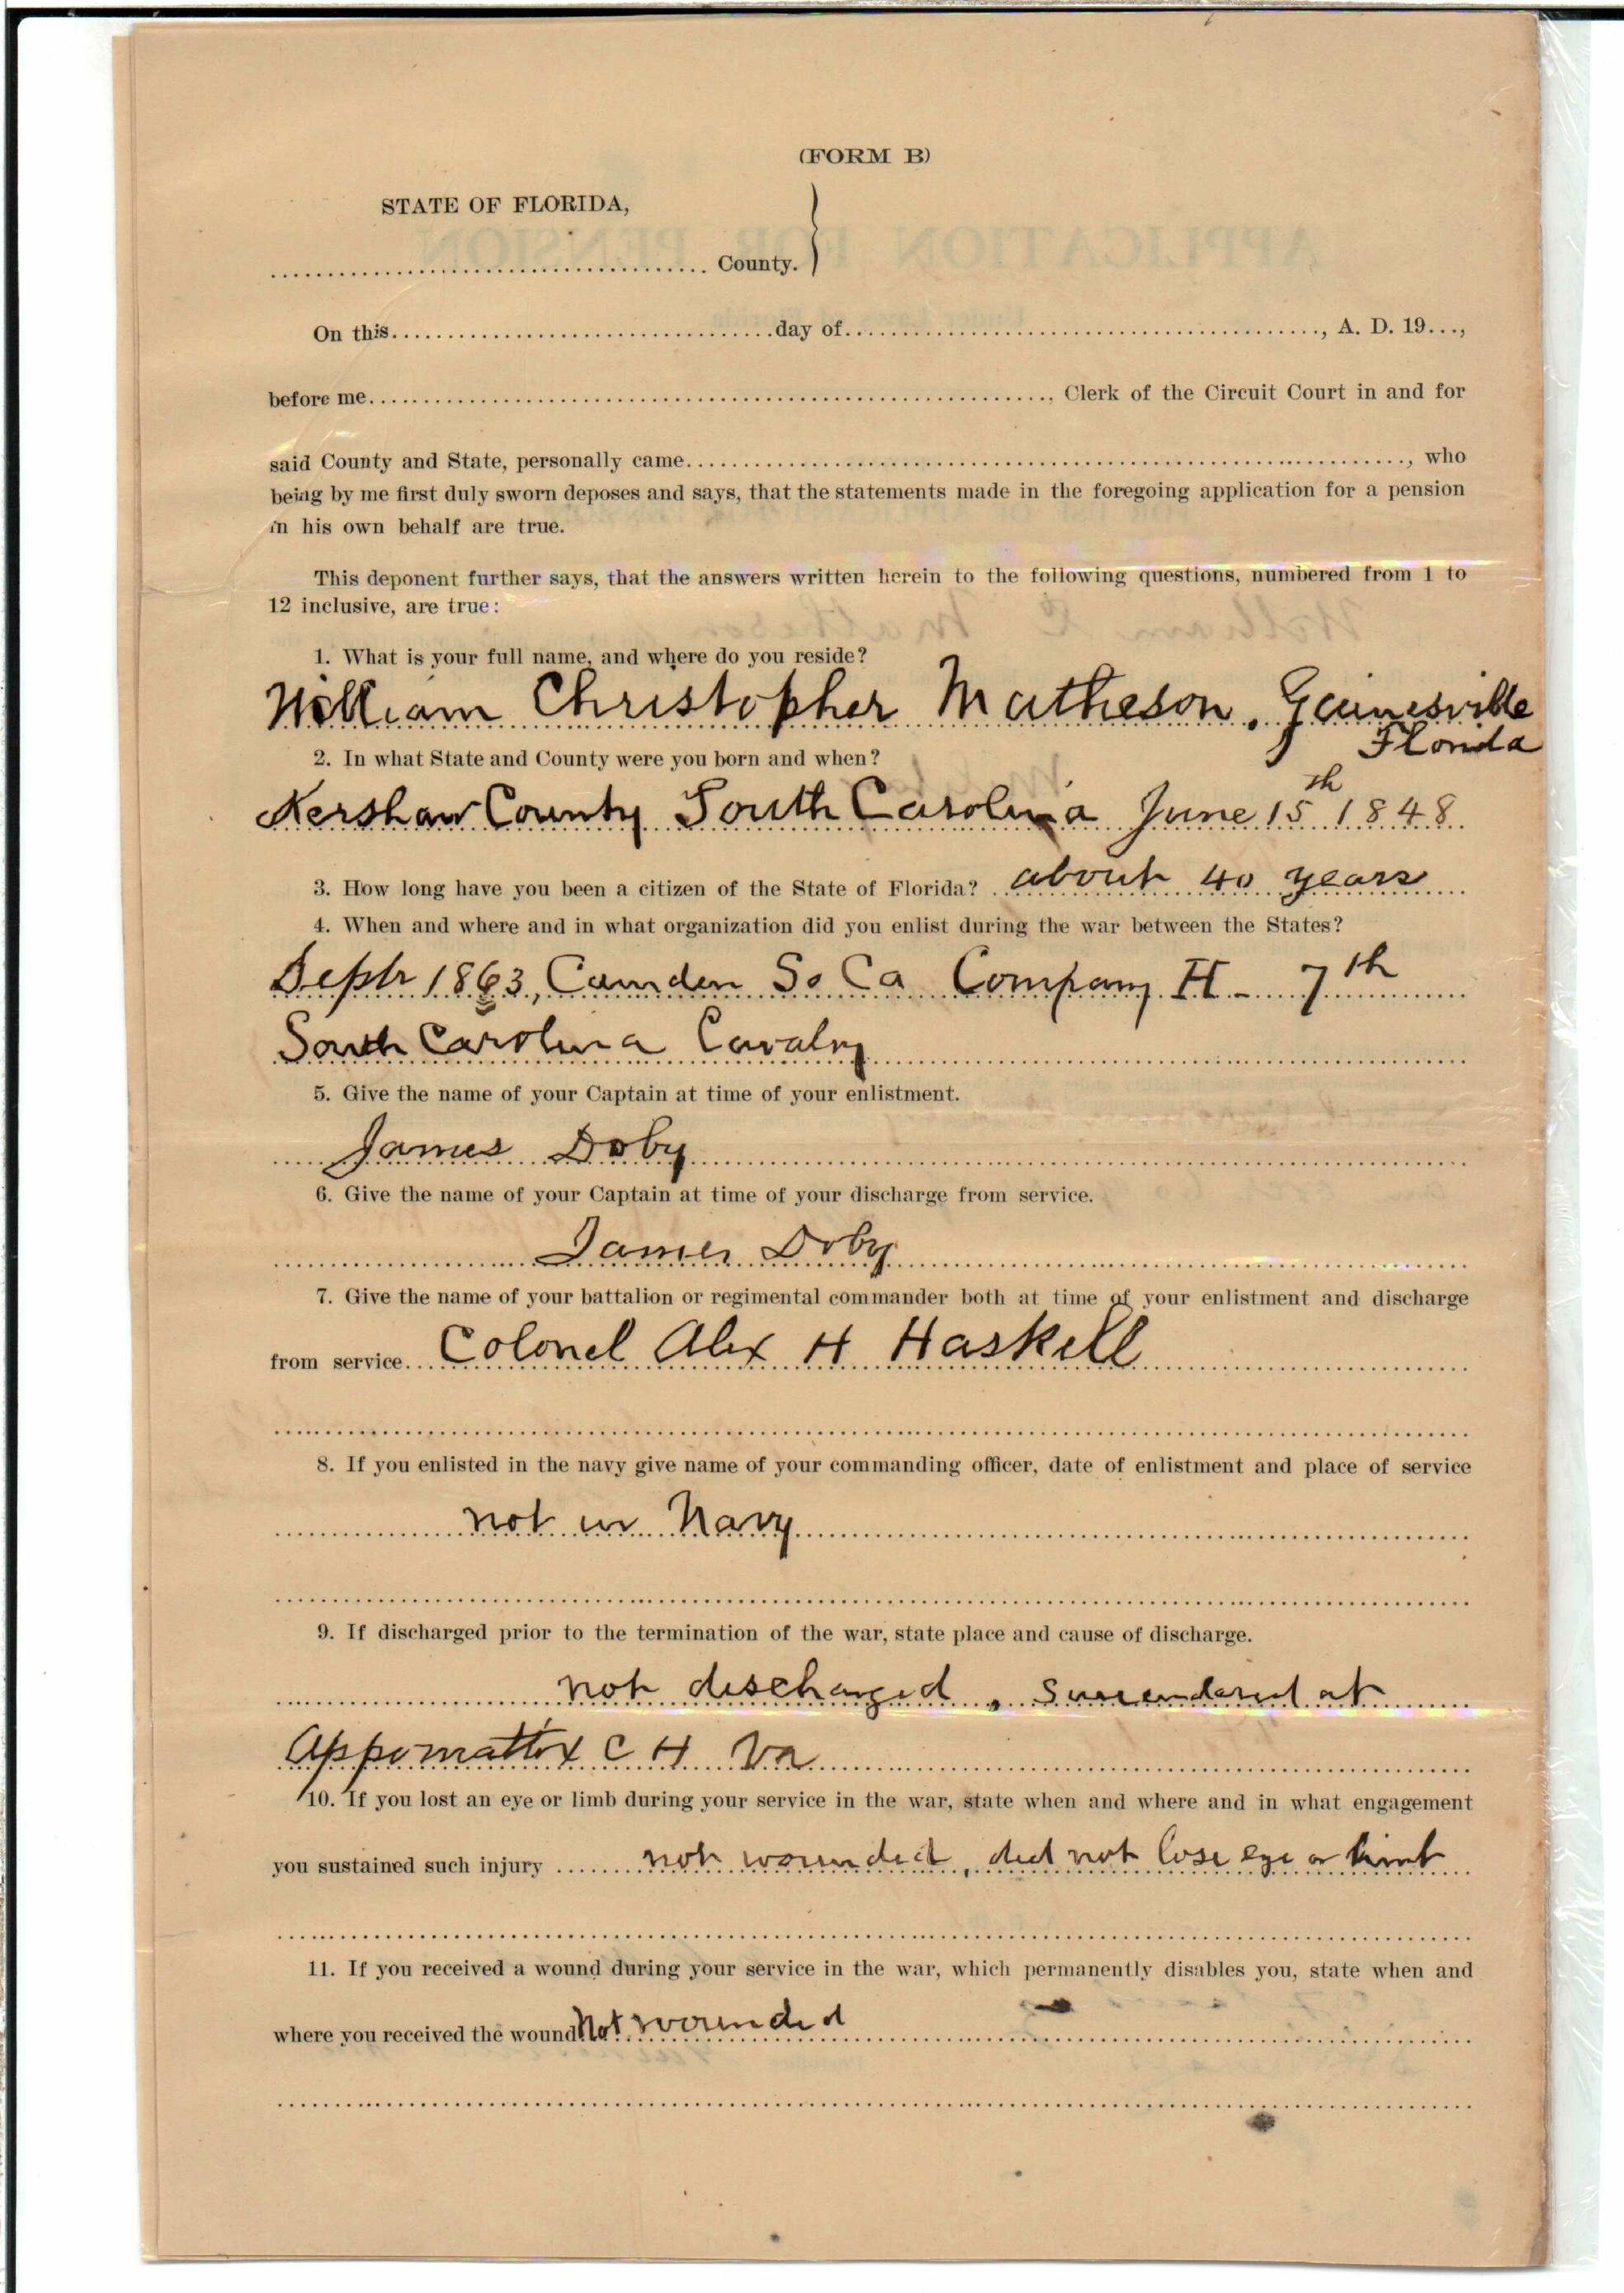 (FORM B)
STATE OF FLORIDA,
........................................ County.
On this........................................day of........................................, A. D. 19...,
before me........................................, Clerk of the Circuit Court in and for
said County and State, personally came........................................, who
being by me first duly sworn deposes and says, that the statements made in the foregoing application for a pension
in his own behalf are true.
This deponent further says, that the answers written herein to the following questions, numbered from 1 to
12 inclusive, are true:
1. What is your full name, and where do you reside?
William Christopher Matheson, Gainesville
Florida
2. In what State and County were you born and when?
Kershaw County South Carolina June 15th 1848
3. How long have you been a citizen of the State of Florida? about 40 years
4. When and where and in what organization did you enlist during the war between the States?
Septr 1863, Camden So Ca Company H - 7th
South Carolina Cavalry
5. Give the name of your Captain at time of your enlistment.
James Doby
6. Give the name of your Captain at time of your discharge from service.
James Doby
7. Give the name of your battalion or regimental commander both at time of your enlistment and discharge
from service... Colonel Alex H Haskell
8. If you enlisted in the navy give name of your commanding officer, date of enlistment and place of service
not in Navy
9. If discharged prior to the termination of the war, state place and cause of discharge.
not discharged, surrendered at
Appomattox C H Va
10. If you lost an eye or limb during your service in the war, state when and where and in what engagement
you sustained such injury ...... not wounded, did not lose eye or limb
11. If you received a wound during your service in the war, which permanently disables you, state when and
where you received the wound Not wounded